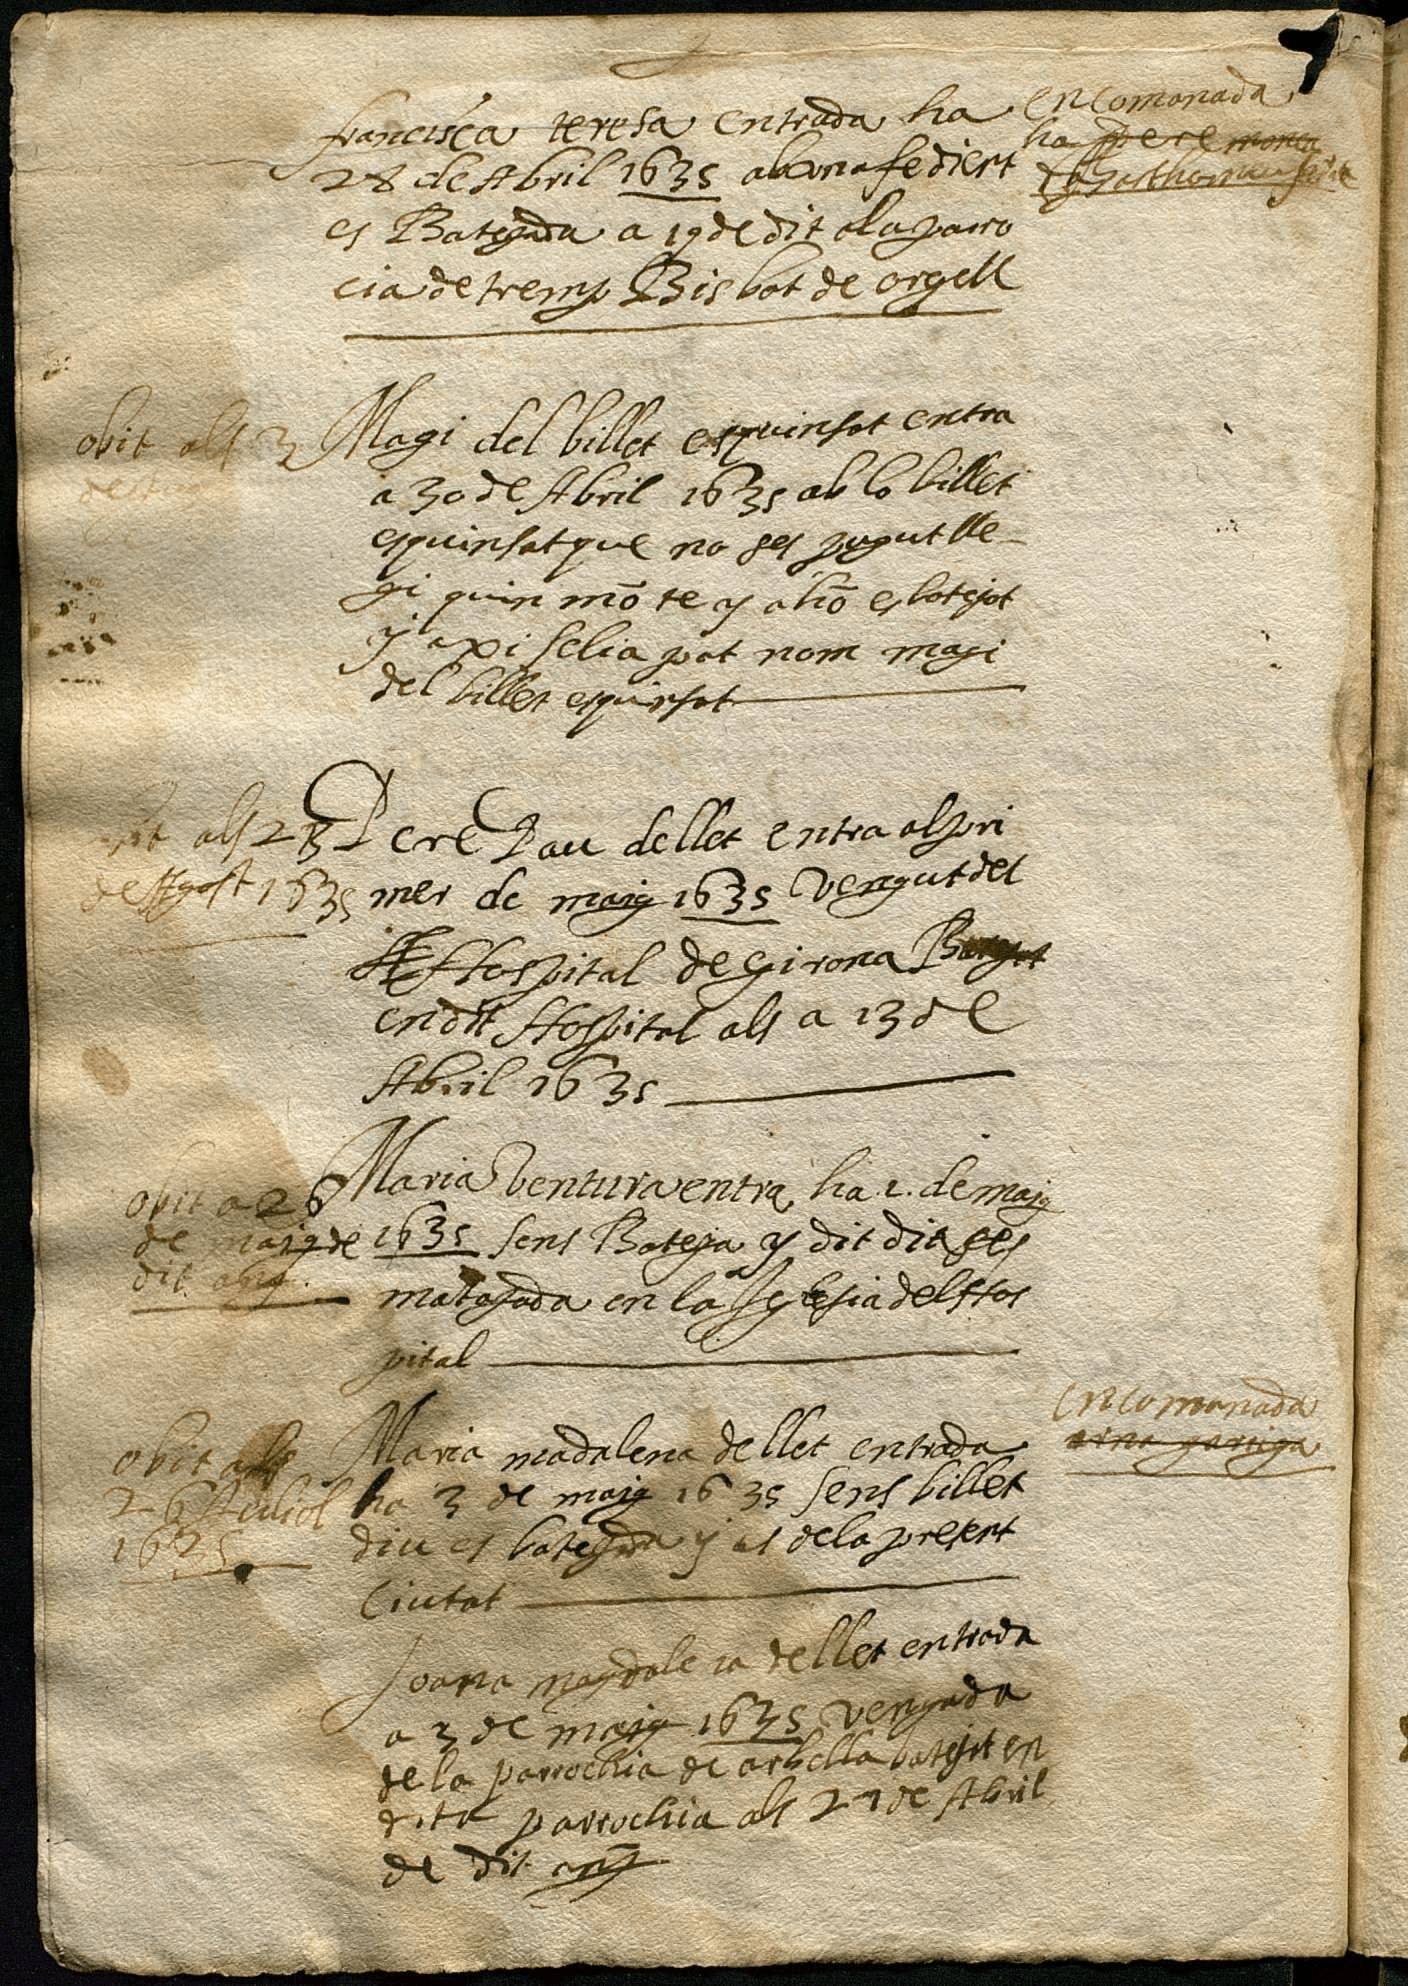 francisca teresa entrada ha
28 de Abril 1635 ab una fe dient
es Batejada a 19 de dit a la parro
cia de tremp Bisbat de orgell
encomanada
ha pere
obit als 3
Magi del billet esquinsat entra
a 30 de Abril 1635 ab lo billet
esquinsat que no ses pugut lle-
gi quin nō te y ahō es batejat
y axi selia pat nom magi
del billet esquinsat
als 28
de Agost 1635
Pere Pau dellet entra al pri
mer de maig 1635 vengut del
Hospital de Girona Batejat
en dit Hospital als a 13 de
Abril 1635
obit a 26
de maig de
dit any.
Maria Ventura entra ha 2. de maig
1635 sens Bateja y dit dit ses
matajada en la Iglesia del Hos
pital
obit als
26 Juliol
1635
Maria madalena dellet entrada
ha 3 de maig 1635 sens billet
diu es batejada y es de la present
Ciutat
encomanada
garriga
Joana magdalena dellet entrada
a 3 de maig 1635 vengada
de la parrochia de arbella batejat en
dita parrochia als 27 de Abril
de dit any